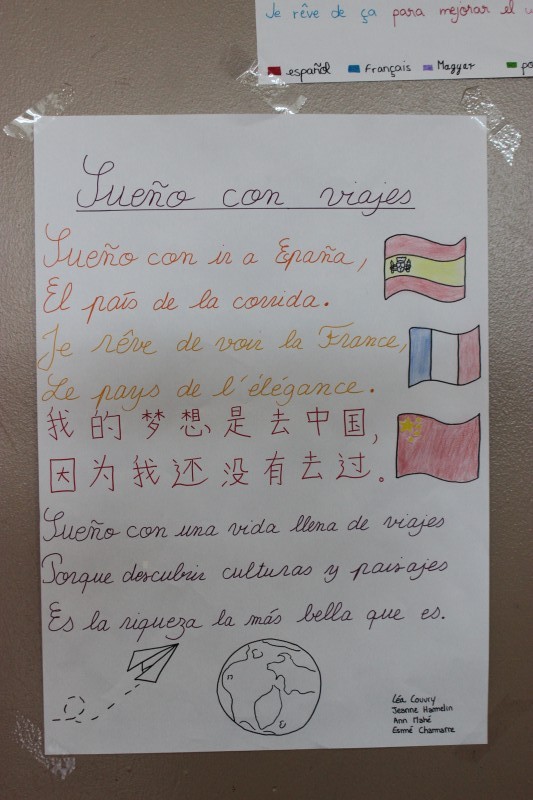 Je rêve de ça para mejorar el
español Français Magyar
Sueño con viajes
Sueño con ir a Epaña,
El país de la corrida.
Je rêve de voir la France,
Le pays de l'élégance.
我的梦想是去中国,
因为我还没有去过。
Sueño con una vida llena de viajes
Porque descubrir culturas y paisajes
Es la riqueza la más bella que es.
Léa Couvry
Jeanne Hamelin
Ann Mahé
Esmé Charmarre